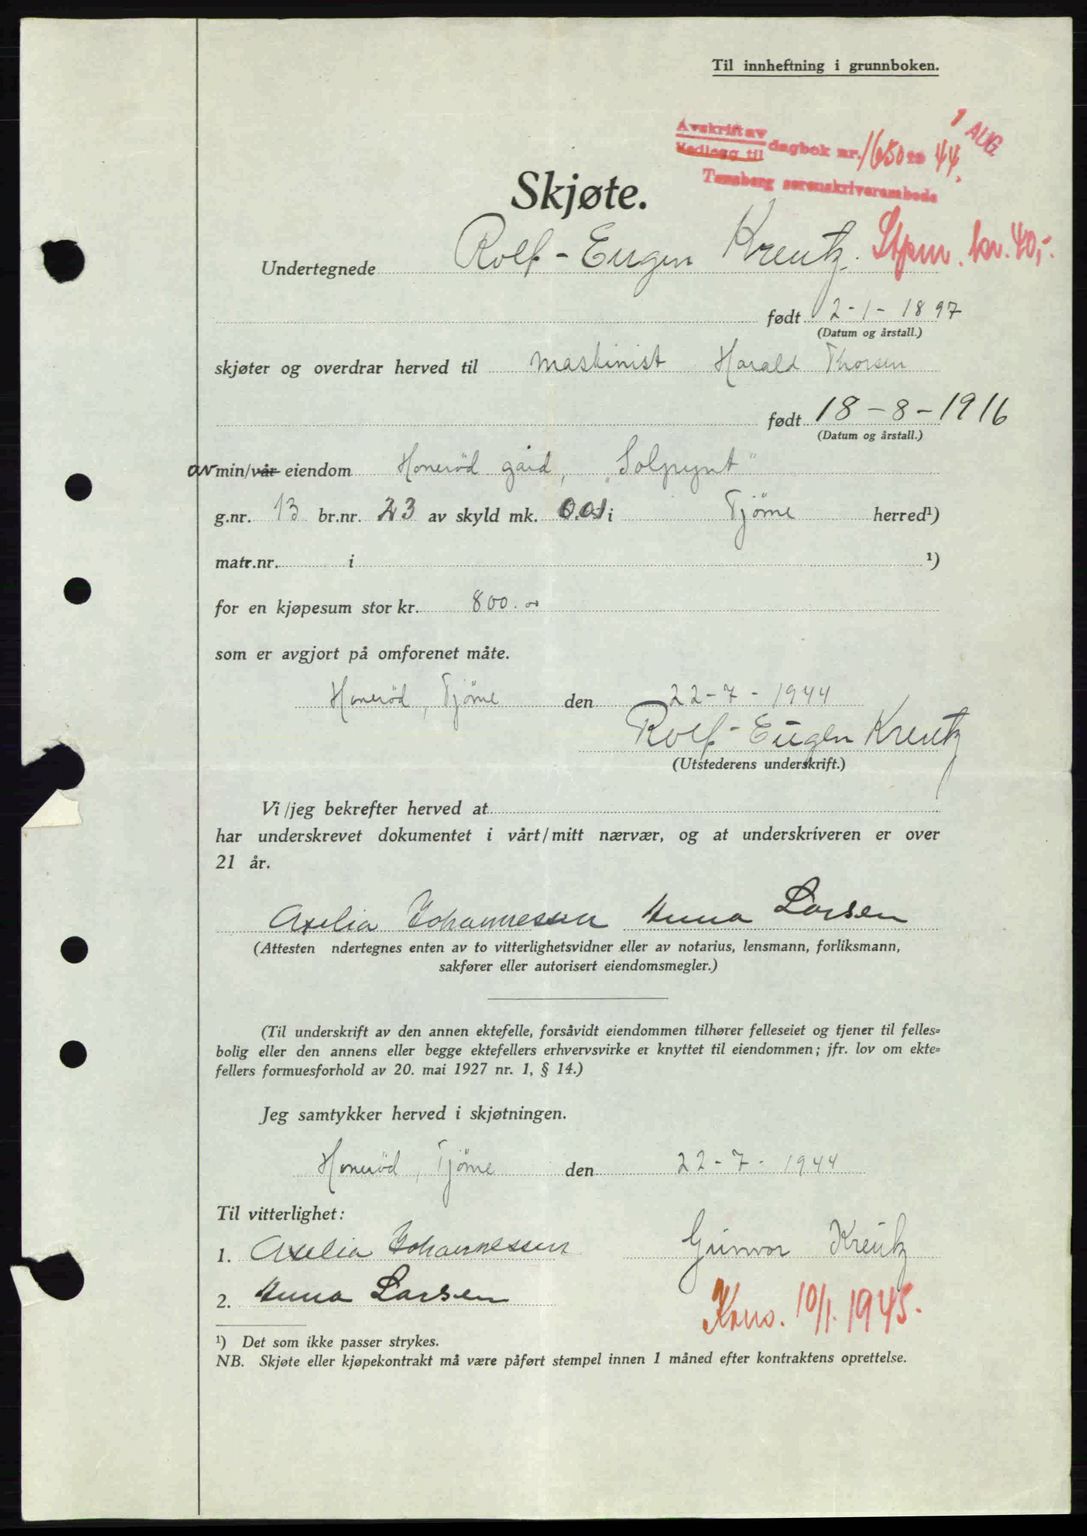 Til innheftning i grunnboken.
1 AUG
Avskrift av
Vedlegg til dagbok nr. 1650 19 44.
Tønsberg sorenskriverembede
Skjøte.
Undertegnede Rolf-Eugen Kreutz. Stpm. kr. 40,-
født 2-1-1897
(Datum og årstall.)
skjøter og overdrar herved til maskinist Harald Thorsen
født 18-8-1916
(Datum og årstall.)
av min/vår eiendom Honerød gård, "Solpynt"
g.nr. 13 br.nr. 23 av skyld mk. 0.01 i Tjøme herred¹)
matr.nr. i ¹)
for en kjøpesum stor kr. 800.
som er avgjort på omforenet måte.
Honerød, Tjøme den 22-7-1944
Rolf-Eugen Kreutz
(Utstederens underskrift.)
Vi/jeg bekrefter herved at
har underskrevet dokumentet i vårt/mitt nærvær, og at underskriveren er over
21 år.
Axelia Johannessen Anna Larsen
(Attesten ndertegnes enten av to vitterlighetsvidner eller av notarius, lensmann, forliksmann,
sakfører eller autorisert eiendomsmegler.)
(Til underskrift av den annen ektefelle, forsåvidt eiendommen tilhører felleseiet og tjener til felles=
bolig eller den annens eller begge ektefellers erhvervsvirke er knyttet til eiendommen; jfr. lov om ekte=
fellers formuesforhold av 20. mai 1927 nr. 1, § 14.)
Jeg samtykker herved i skjøtningen.
Honerød, Tjøme den 22-7-1944
Til vitterlighet:
1. Axelia Johannessen Gunvor Kreutz
2. Anna Larsen
10/1. 1945.
¹) Det som ikke passer strykes.
NB. Skjøte eller kjøpekontrakt må være påført stempel innen 1 måned efter kontraktens oprettelse.